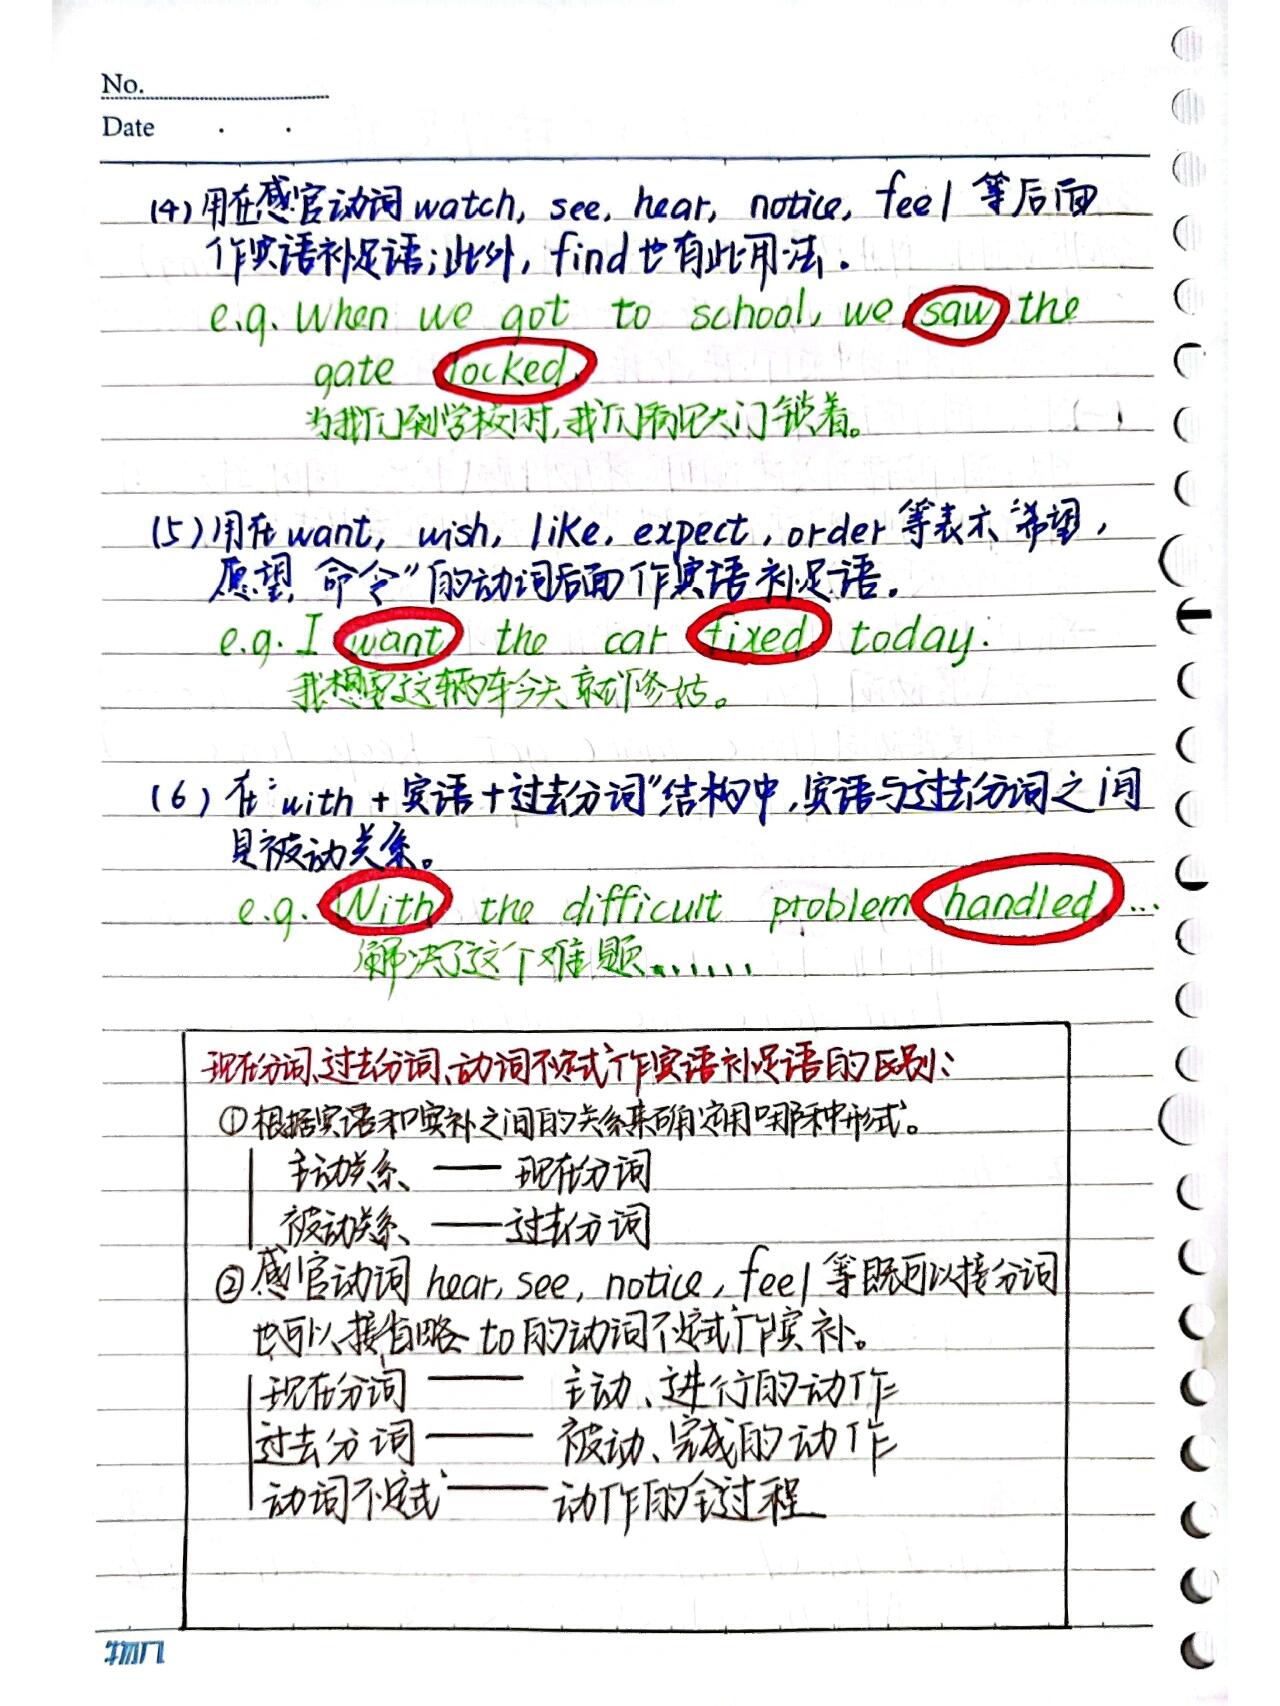 No.
Date . .
(4) 用在感官动词 watch, see, hear, notice, feel 等后面
作宾语补足语;此外, find也有此用法.
e.g. When we got to school, we saw the
gate locked.
当我们到学校时,我们看见大门锁着。
(5) 用在 want, wish, like, expect, order 等表示“希望,
愿望,命令”的动词后面作宾语补足语.
e.g. I want the car fixed today.
我想要这辆车今天就修好。
(6) 在“with + 宾语 + 过去分词”结构中,宾语与过去分词之间
是被动关系。
e.g. With the difficult problem handled, ...
解决了这个难题......
现在分词、过去分词、动词不定式作宾语补足语的区别:
①根据宾语和宾补之间的关系来确定用哪种形式。
主动关系 —— 现在分词
被动关系 —— 过去分词
②感官动词 hear, see, notice, feel 等既可以接分词
也可以接省略 to 的动词不定式作宾补。
现在分词 —— 主动、进行的动作
过去分词 —— 被动、完成的动作
动词不定式 —— 动作的全过程